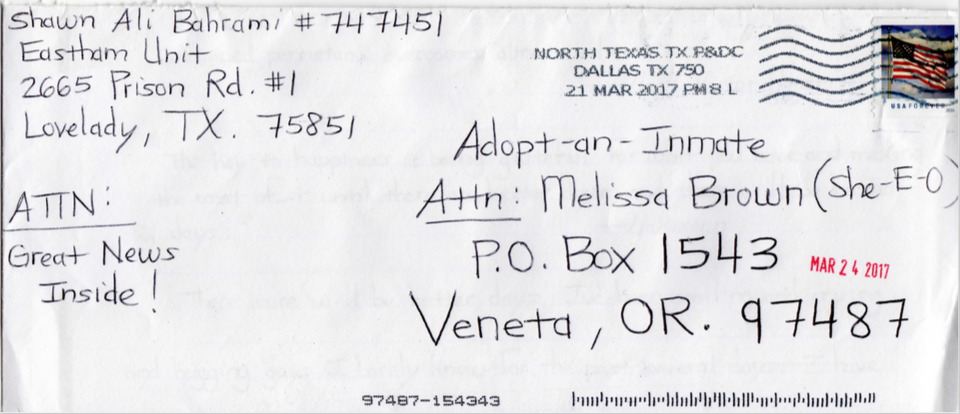 Shawn Ali Bahrami #747451
Eastham Unit
2665 Prison Rd. #1
Lovelady, TX. 75851
ATTN:
Great News
Inside!
NORTH TEXAS TX P&DC
DALLAS TX 750
21 MAR 2017 PM 8 L
USA FOREVER
Adopt-an-Inmate
Attn Melissa Brown (She-E-O
P.O. Box 1543
MAR 24 2017
Veneta, OR. 97487
97487-154343